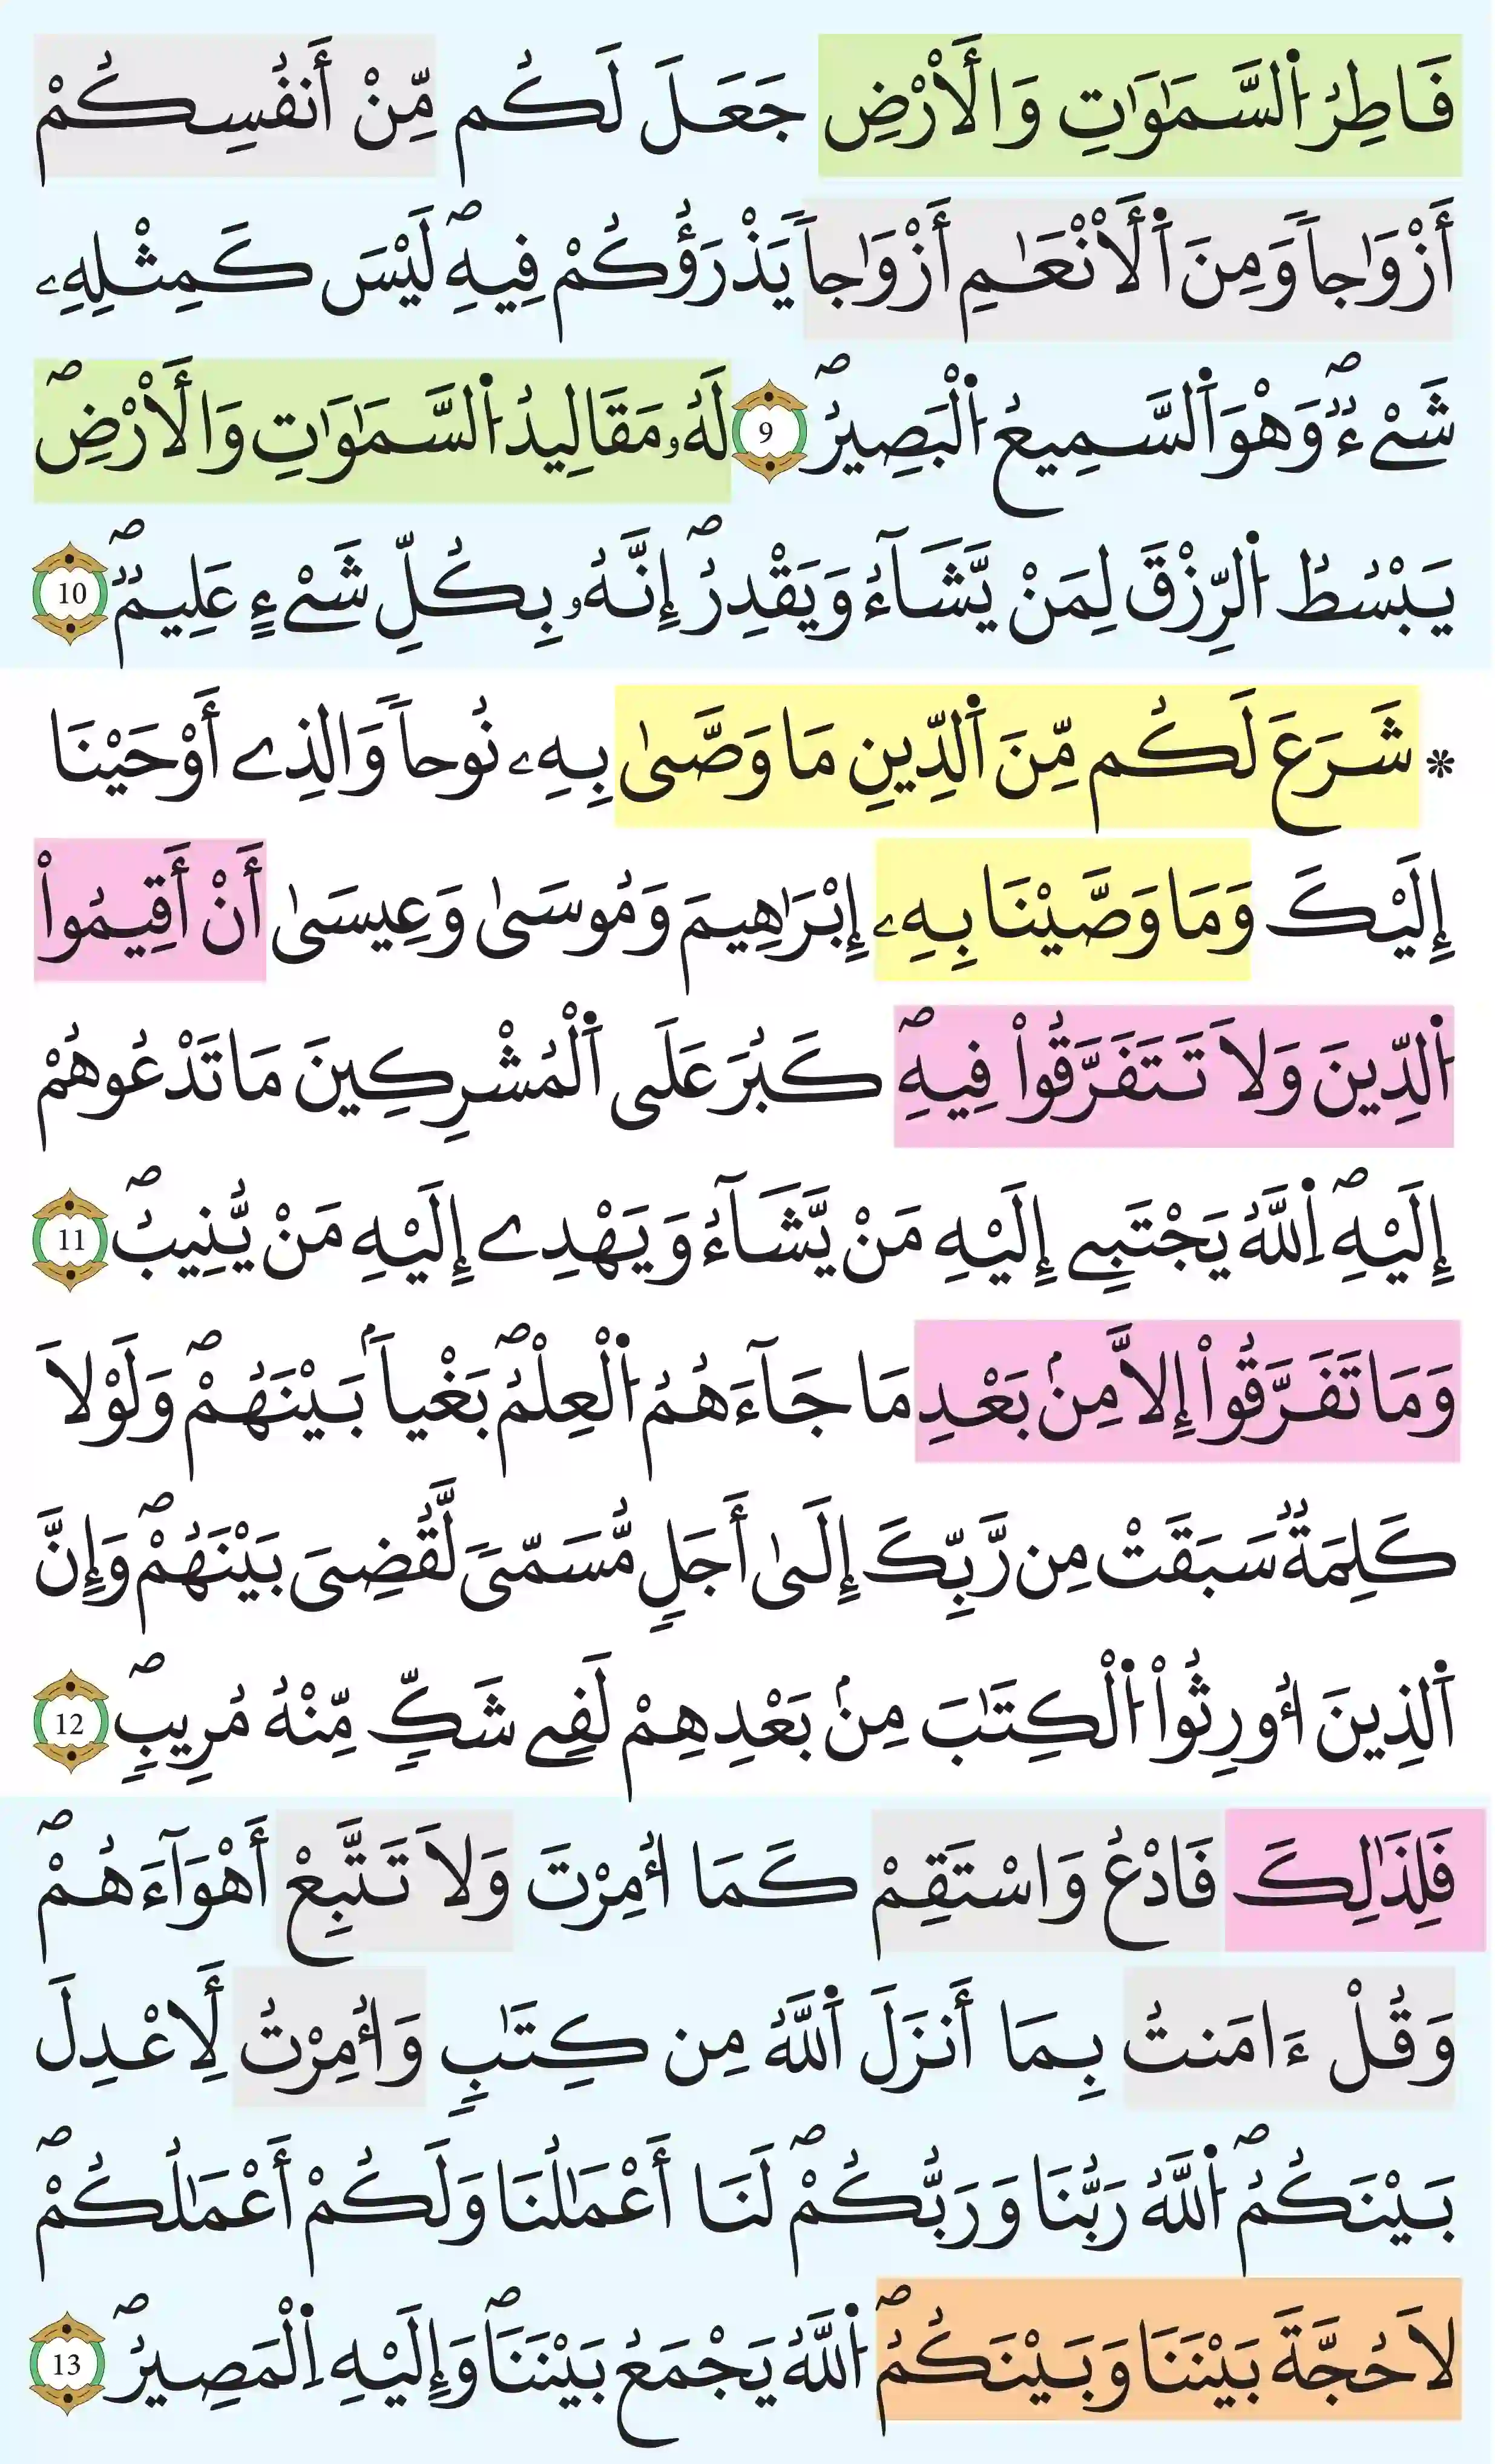 فَاطِرُ اُ۬لسَّمَٰوَٰتِ وَالَارْضِ جَعَلَ لَكُم مِّنْ أَنفُسِكُمْ
أَزْوَٰجاٗ وَمِنَ اَ۬لَانْعَٰمِ أَزْوَٰجاٗ يَذْرَؤُكُمْ فِيهِۖ لَيْسَ كَمِثْلِهِۦ
شَےْءٞۖ وَهْوَ اَ۬لسَّمِيعُ اُ۬لْبَصِيرُۖ 9 لَهُۥ مَقَالِيدُ اُ۬لسَّمَٰوَٰتِ وَالَارْضِۖ
يَبْسُطُ اُ۬لرِّزْقَ لِمَنْ يَّشَآءُ وَيَقْدِرُۖ إِنَّهُۥ بِكُلِّ شَےْءٍ عَلِيمٞۖ 10
* شَرَعَ لَكُم مِّنَ اَ۬لدِّينِ مَا وَصَّىٰ بِهِۦ نُوحاٗ وَالذِے أَوْحَيْنَا
إِلَيْكَ وَمَا وَصَّيْنَا بِهِۦ إِبْرَٰهِيمَ وَمُوسَىٰ وَعِيسَىٰ أَنْ أَقِيمُواْ
اُ۬لدِّينَ وَلَا تَتَفَرَّقُواْ فِيهِۖ كَبُرَ عَلَى اَ۬لْمُشْرِكِينَ مَا تَدْعُوهُمْ
إِلَيْهِۖ اِ۬للَّهُ يَجْتَبِے إِلَيْهِ مَنْ يَّشَآءُ وَيَهْدِے إِلَيْهِ مَنْ يُّنِيبُۖ 11
وَمَا تَفَرَّقُواْ إِلَّا مِنۢ بَعْدِ مَا جَآءَهُمُ اُ۬لْعِلْمُۖ بَغْياَۢ بَيْنَهُمْۖ وَلَوْلَا
كَلِمَةٞ سَبَقَتْ مِن رَّبِّكَ إِلَىٰ أَجَلٖ مُّسَمّىٗ لَّقُضِيَ بَيْنَهُمْۖ وَإِنَّ
اَ۬لذِينَ أُورِثُواْ اُ۬لْكِتَٰبَ مِنۢ بَعْدِهِمْ لَفِے شَكّٖ مِّنْهُ مُرِيبٖۖ 12
فَلِذَٰلِكَ فَادْعُ وَاسْتَقِمْ كَمَا أُمِرْتَ وَلَا تَتَّبِعْ أَهْوَآءَهُمْۖ
وَقُلْ ءَامَنتُ بِمَا أَنزَلَ اَ۬للَّهُ مِن كِتَٰبٖ وَأُمِرْتُ لِأَعْدِلَ
بَيْنَكُمُۖ اُ۬للَّهُ رَبُّنَا وَرَبُّكُمْۖ لَنَا أَعْمَٰلُنَا وَلَكُمْ أَعْمَٰلُكُمْۖ
لَا حُجَّةَ بَيْنَنَا وَبَيْنَكُمُۖ اُ۬للَّهُ يَجْمَعُ بَيْنَنَاۖ وَإِلَيْهِ اِ۬لْمَصِيرُۖ 13